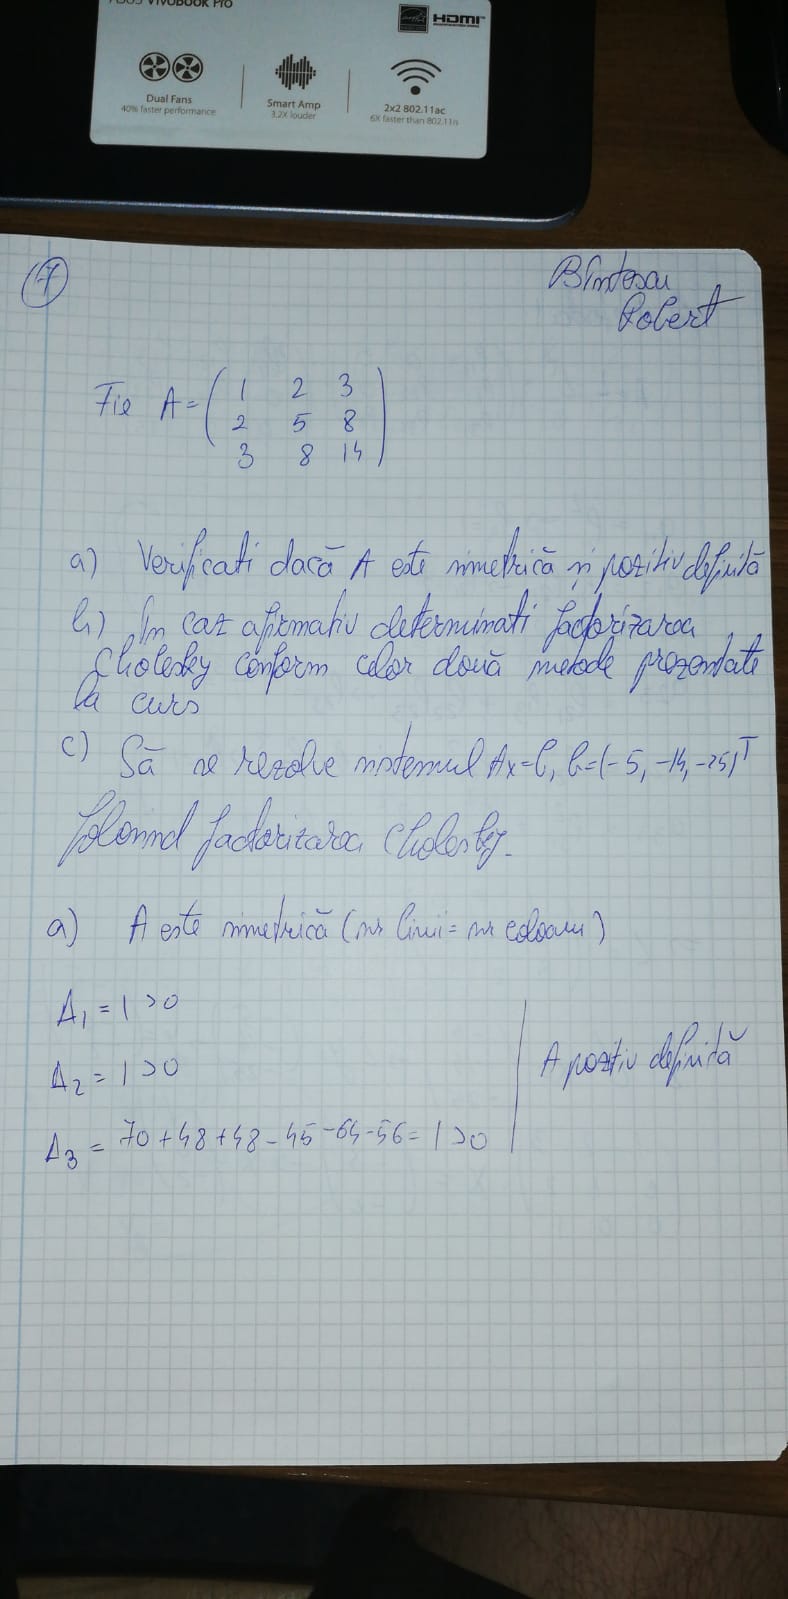 ASUS VivoBook Pro
HDMI
Dual Fans
40% faster performance
Smart Amp
3.2X louder
2x2 802.11ac
6X faster than 802.11n
7
Robert
Fie A = ( 1 2 3
2 5 8
3 8 14 )
a) Verificati dacă A este simetrică și pozitiv definită
b) În caz afirmativ determinati factorizarea
Cholesky conform celor două metode prezentate
la curs
c) Să se rezolve sistemul Ax=b, b=(-5, -14, -25)ᵀ
folosind factorizarea Cholesky.
a) A este simetrică (nr linii = nr coloane)
Δ₁ = 1 >0
Δ₂ = 1 >0
Δ₃ = 70+48+48-45-64-56= 1 >0
A pozitiv definită